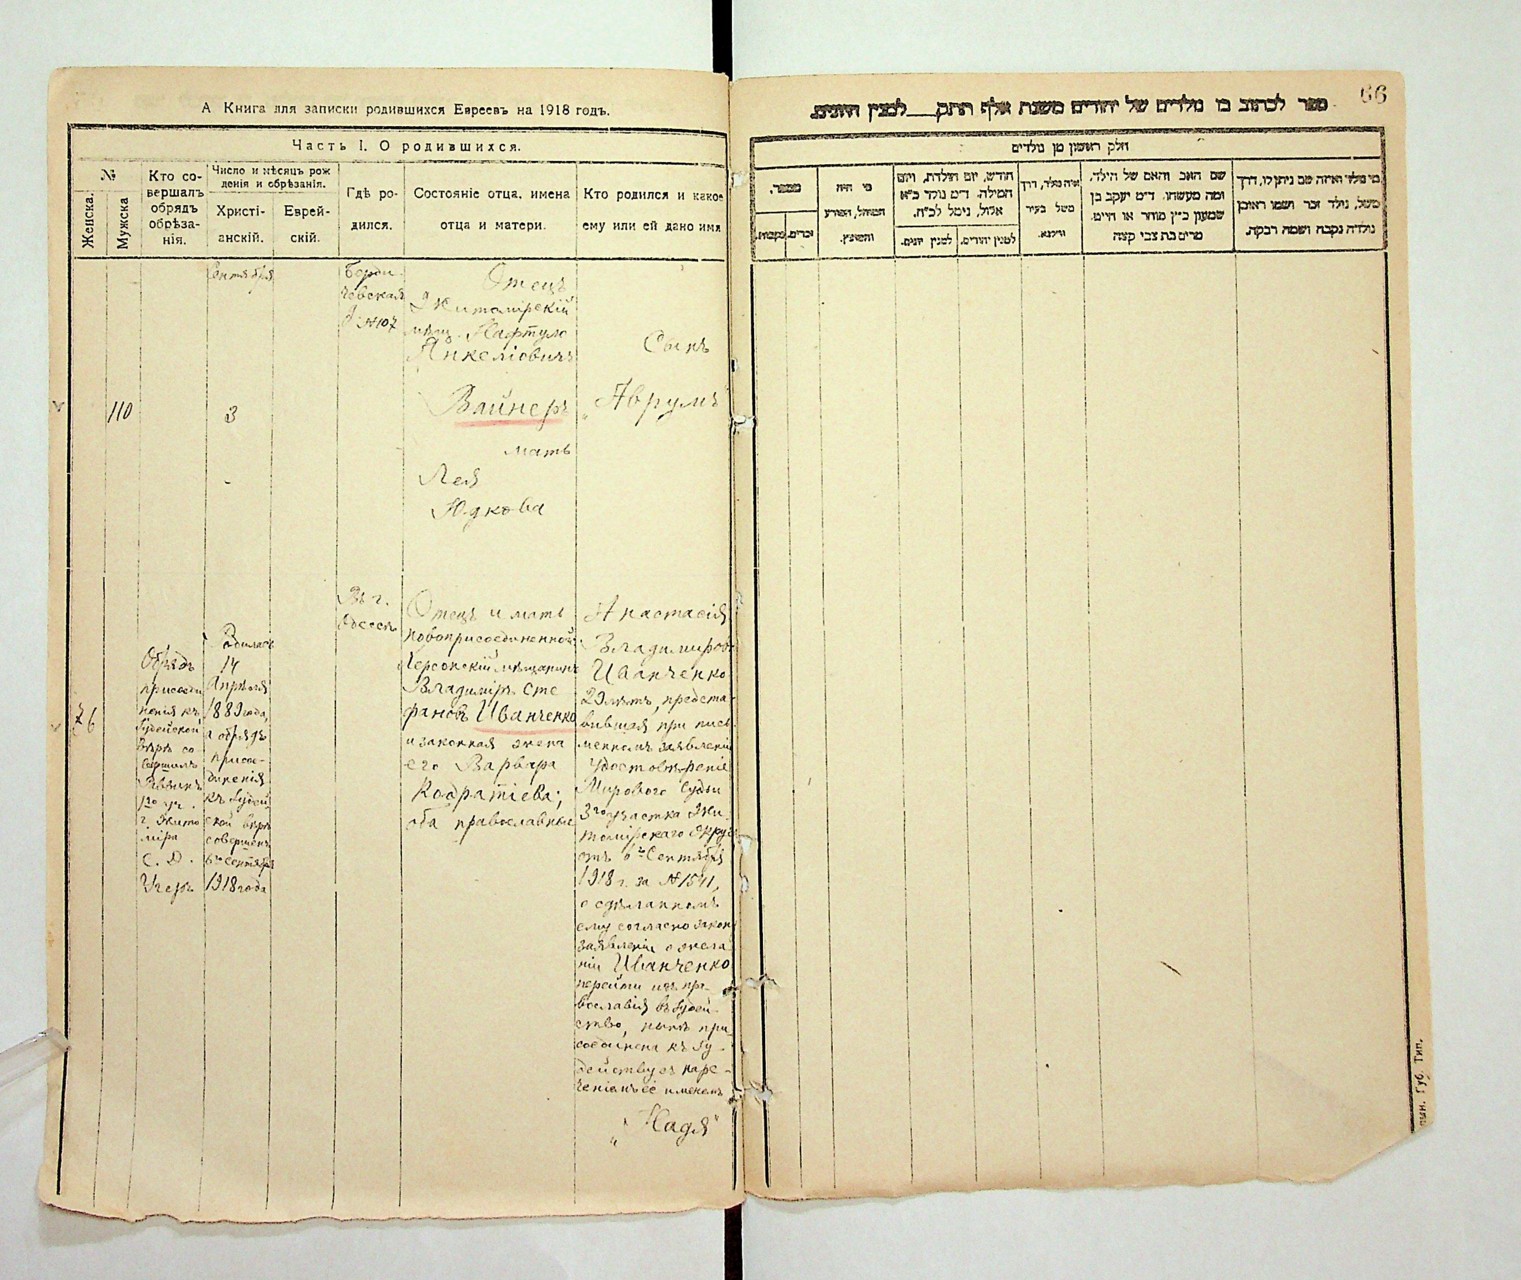 А Книга для записки родившихся Евреевъ на 1918 годъ.
Часть I. О родившихся.
№
Женска.
Мужска
Кто со-
вершалъ
обрядъ
обрѣза-
нія.
Число и мѣсяцъ рож
денія и обрѣзанія.
Христі-
анскій.
Еврей-
скій.
Гдѣ ро-
дился.
Состояніе отца, имена
отца и матери.
Кто родился и какое
ему или ей дано имя
110
Сентября
3
Берди-
чевская
№107
Отецъ
Житомірскій
мѣщ. Нафтула
Янкеліовичъ
Вайнеръ
мать
Лея
Юдкова
Сынъ
„Аврумъ"
76
Обрядъ
присоеди
ненія къ
Іудейской
Вѣрѣ со
вершилъ
Раввинъ
г. Жито
міра
С. Д.
Родилась
14
Апрѣля
1889 года,
а обрядъ
присое-
диненія
къ Іудей
ской вѣрѣ
совершенъ
6го Сентября
1918 года
Въ г.
Одессѣ
Отецъ и мать
новоприсоединенной
Херсонскій мѣщанинъ
Владиміръ Сте
фановъ Иванченко
и законная жена
его Варвара
оба православные
Анастасія
Владимирова
Иванченко
29 лѣтъ, предста-
вившая при пись
менномъ заявленіи
удостовѣреніе
Мирового Судьи
3го участка Жи-
томірскаго Округа
отъ 6го Сентября
1918 г. за №1541,
о сдѣланномъ
ему согласно закону
заявленіи о жела
ніи Иванченко
перейти изъ пра-
вославія въ Іудей-
ство, нынѣ при
соединена къ Іу-
действу съ наре-
ченіемъ ее именемъ
„Надя"
66
ספר לכתוב בו נולדים של יהודים משנת אלף תתק___למנין היונים.
חלק ראשון מן נולדים
מספר.
נקבות.
זכרים.
מי היה
המוהל, הפורע
והמוצץ.
חודש, יום הולדת, ויום
המילה. ד״מ נולד כ״א
אלול, נימל לכ״ח.
למנין יונים.
למנין יהודים.
איה נולד, דרך
משל בעיר
ווילנא.
שם האב והאם של הילד.
ומה מעשהו. ד״מ יעקב בן
שמעון כ״ץ סוחר או חייט.
מרים בת צבי קצב
מי נולד ואיזה שם ניתן לו, דרך
משל, נולד זכר ושמו ראובן
נולדה נקבה ושמה רבקה.
Губ. Тип.